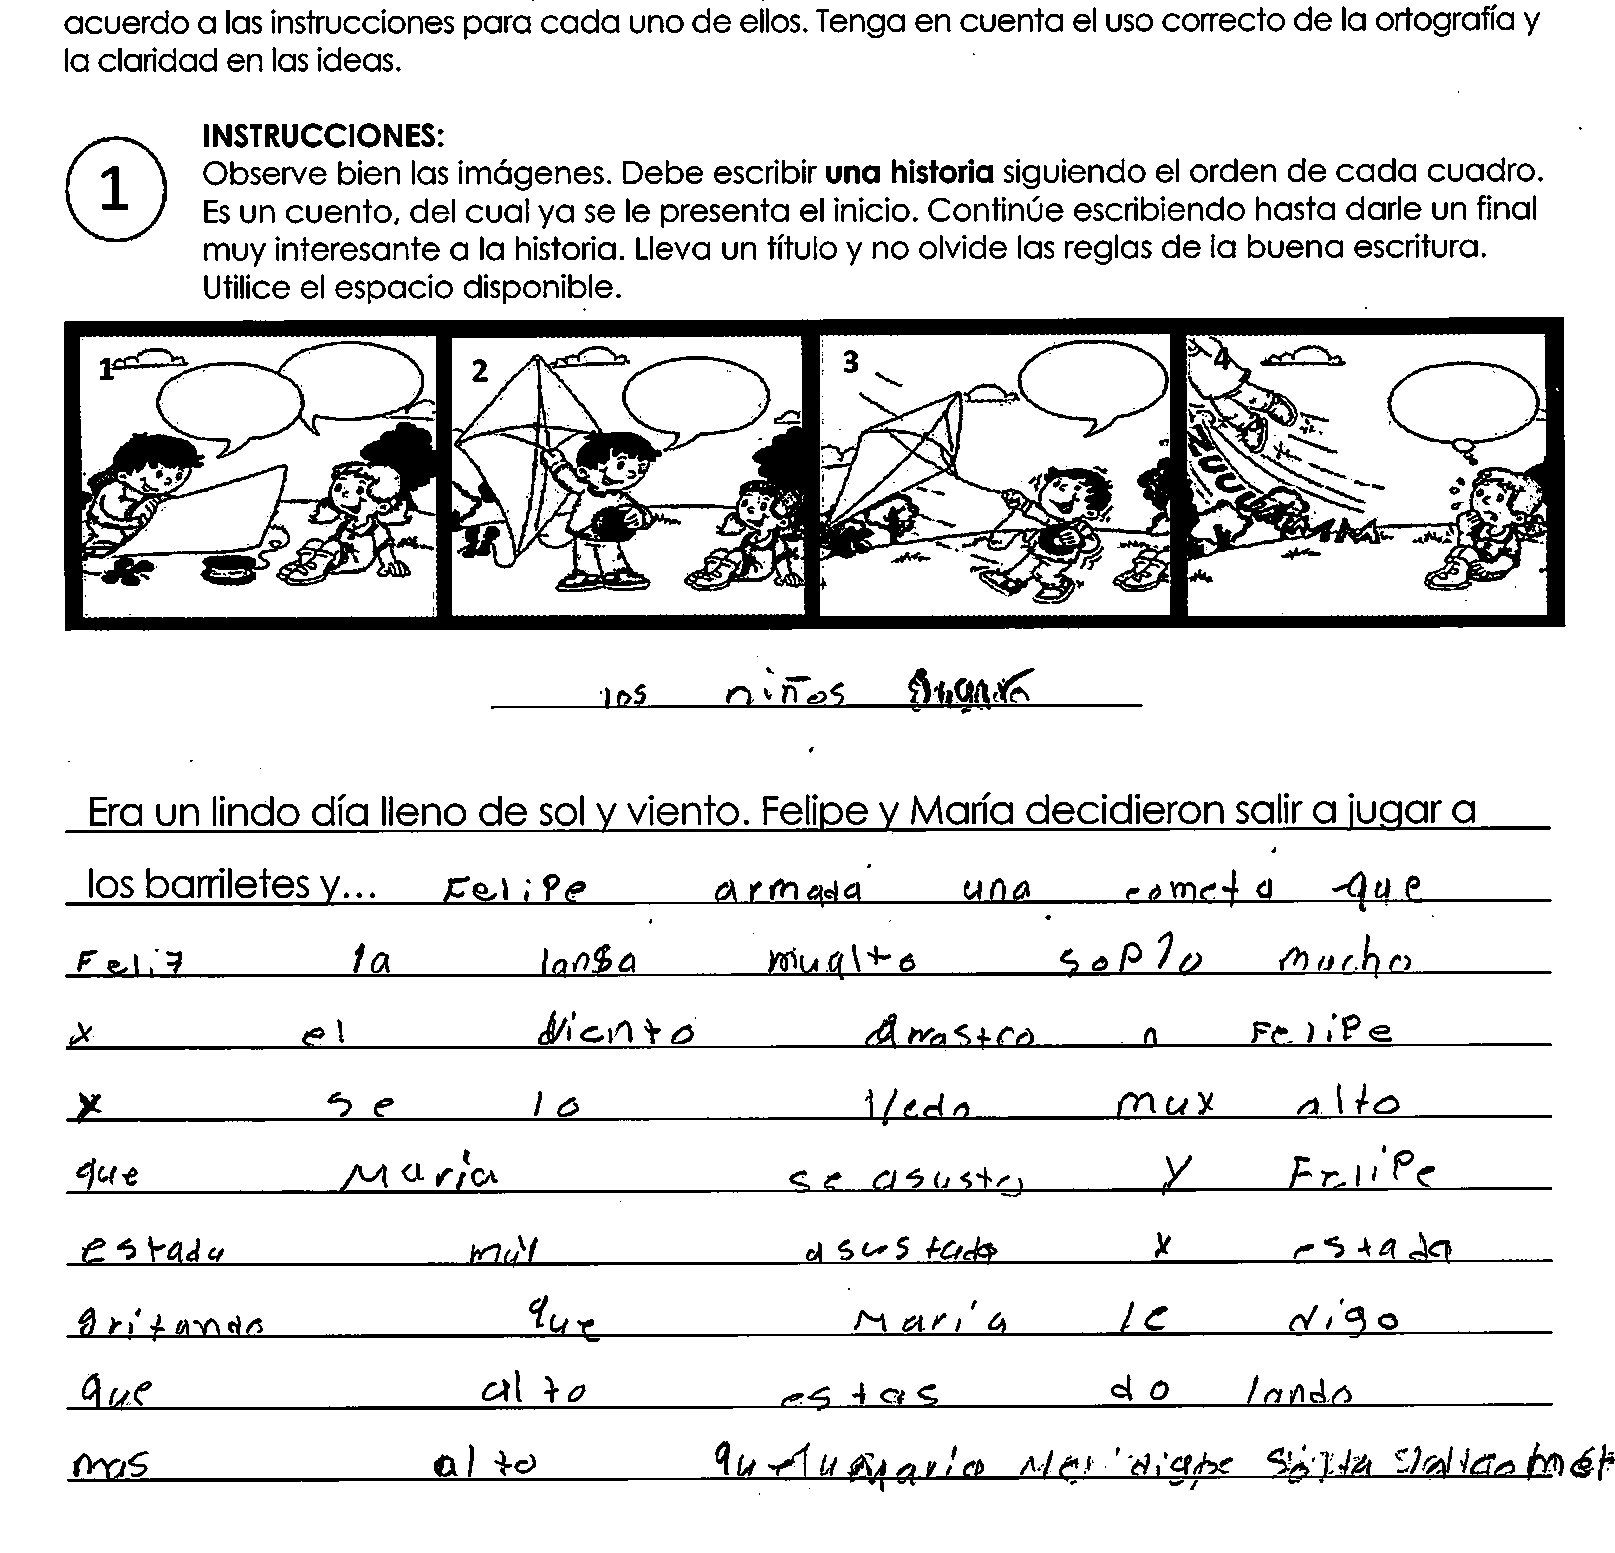 acuerdo a las instrucciones para cada uno de ellos. Tenga en cuenta el uso correcto de la ortografía y
la claridad en las ideas.
INSTRUCCIONES:
1
Observe bien las imágenes. Debe escribir una historia siguiendo el orden de cada cuadro.
Es un cuento, del cual ya se le presenta el inicio. Continúe escribiendo hasta darle un final
muy interesante a la historia. Lleva un título y no olvide las reglas de la buena escritura.
Utilice el espacio disponible.
1 2 3 4
los niños
Era un lindo día lleno de sol y viento. Felipe y María decidieron salir a jugar a
los barriletes y... Felipe armada una cometa que
Feliz la lansa mualto soplo mucho
x el viento arrastro a Felipe
x se lo lledo mux alto
que María se asusto y Felipe
estada mui asustado x estada
gritando que María le digo
que alto estas do lando
mas alto